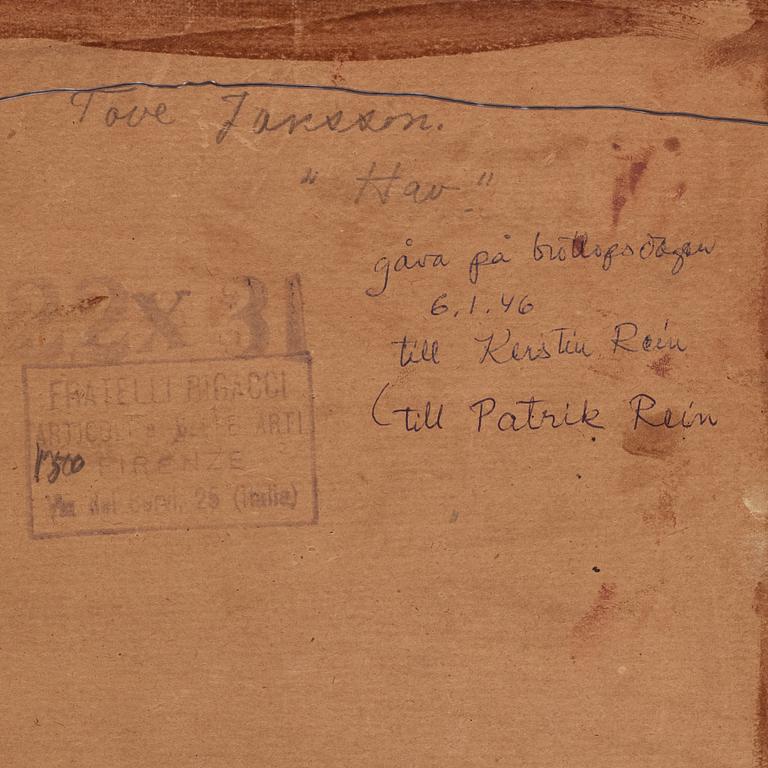 Tove Jansson.
"Hav"
gåva på bröllopsdagen
6.1.46
till Kerstin Rein
(till Patrik Rein
22x31
FRATELLI RIGACCI
ARTICOLI BELLE ARTI
1500 FIRENZE
Via dei Servi, 25 (Italia)